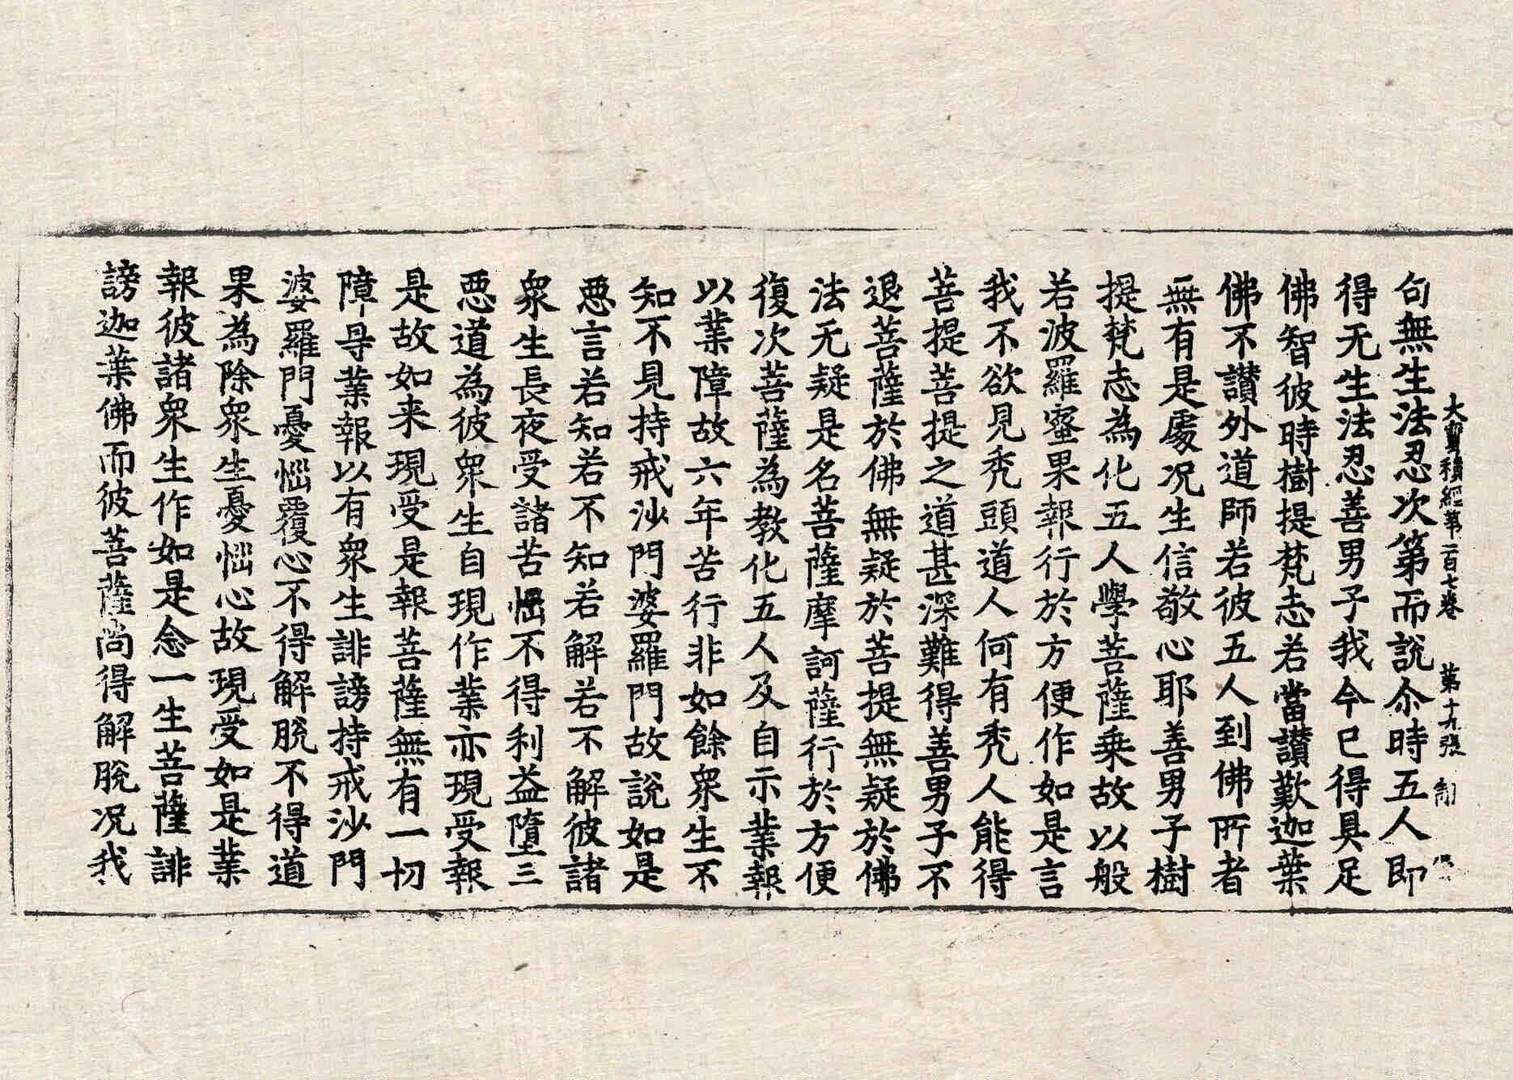 大寶積經第一百七卷 第十九張 制
句無生法忍次第而說尒時五人即
得无生法忍善男子我今已得具足
佛智彼時樹提梵志若當讃歎迦葉
佛不讃外道師若彼五人到佛所者
無有是處况生信敬心耶善男子樹
提梵志為化五人學菩薩乗故以般
若波羅蜜果報行於方便作如是言
我不欲見秃頭道人何有秃人能得
菩提菩提之道甚深難得善男子不
退菩薩於佛無疑於菩提無疑於佛
法无疑是名菩薩摩訶薩行於方便
復次菩薩為教化五人及自示業報
以業障故六年苦行非如餘衆生不
知不見持戒沙門婆羅門故說如是
悪言若知若不知若解若不解彼諸
衆生長夜受諸苦惱不得利益墮三
悪道為彼衆生自現作業亦現受報
是故如来現受是報菩薩無有一切
障㝵業報以有衆生誹謗持戒沙門
婆羅門憂惱覆心不得解脫不得道
果為除衆生憂惱心故現受如是業
報彼諸衆生作如是念一生菩薩誹
謗迦葉佛而彼菩薩尚得解脫况我